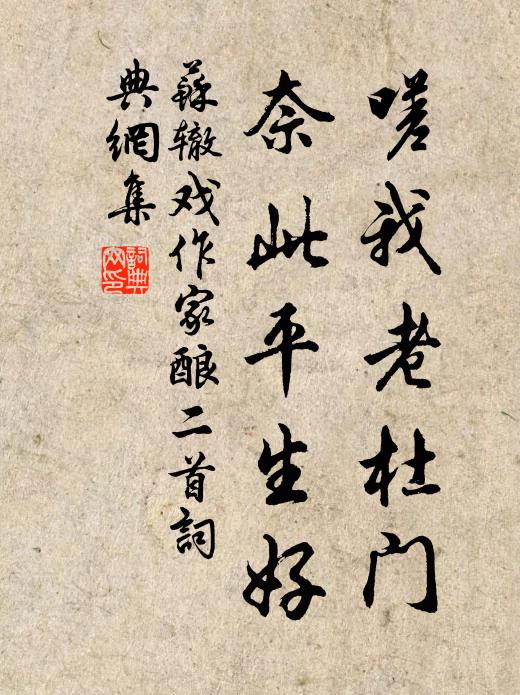 嗟我老杜门
奈此平生好
蘇辙戏作家酿二首詞
典網集
詞典